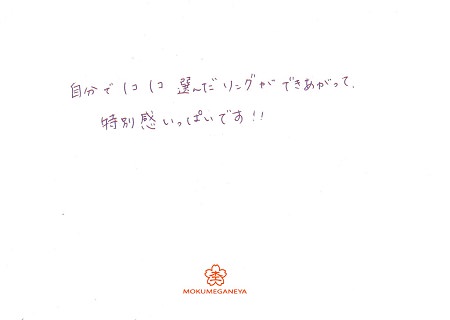 自分で1コ1コ選んだリングができあがって、
特別感いっぱいです!!
MOKUMEGANEYA